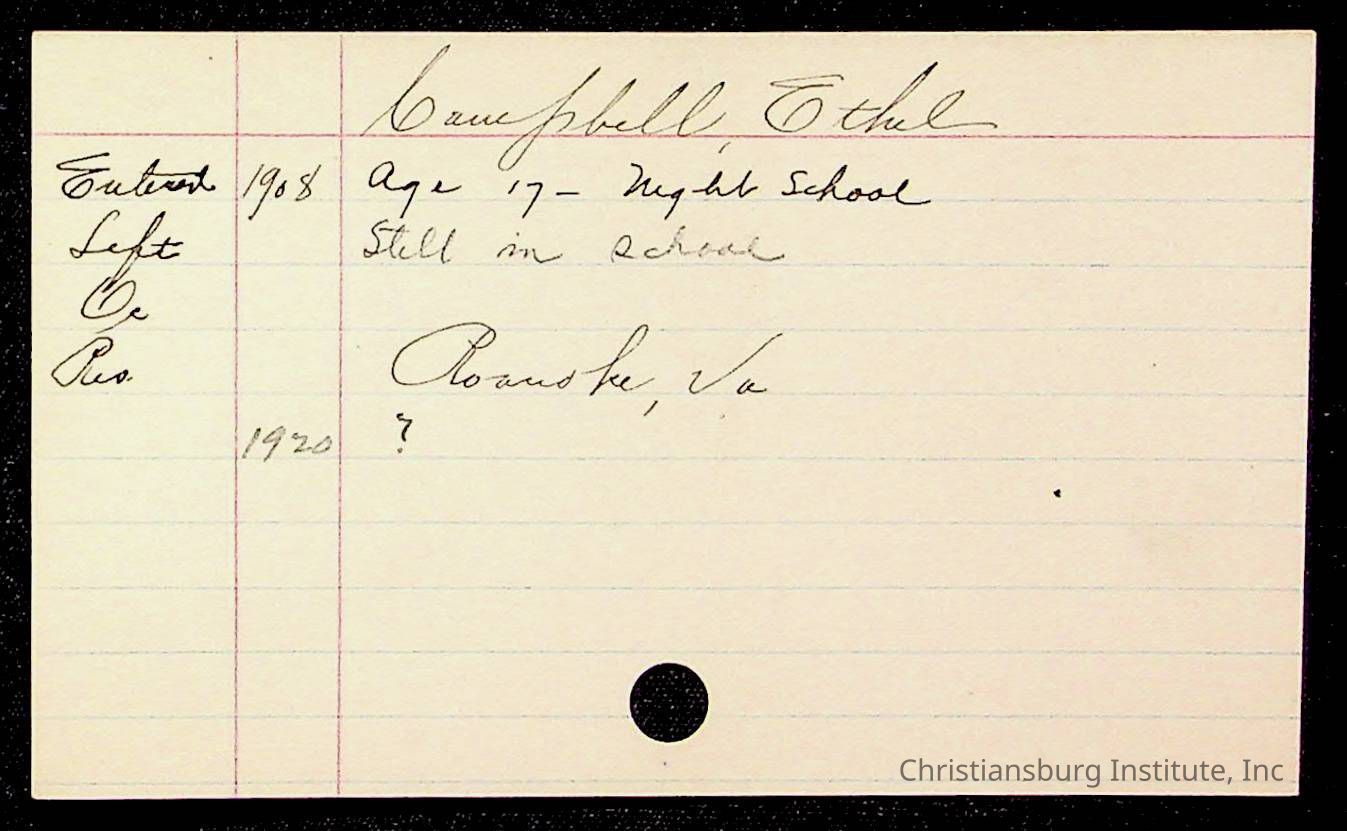 Campbell, Ethel
Entered 1908 Age 17 - Night School
Left Still in school
Oc
Res. Roanoke, Va
1920 ?
Christiansburg Institute, Inc